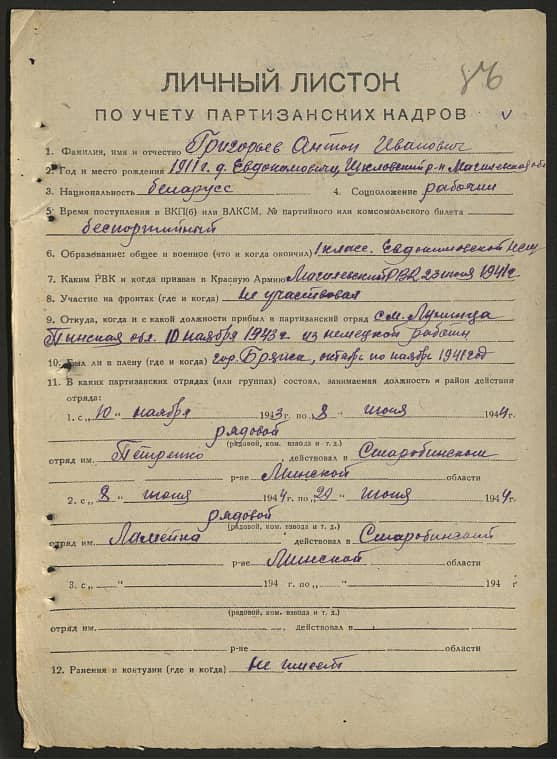 876
ЛИЧНЫЙ ЛИСТОК
ПО УЧЕТУ ПАРТИЗАНСКИХ КАДРОВ
1. Фамилия, имя и отчество Григорьев Антон Иванович
2. Год и место рождения 1911 г. д. Евдокимовичи, Шкловский р-н Могилевская обл
3. Национальность беларусс 4. Соцположение рабочий
5. Время поступления в ВКП(б) или ВЛКСМ, № партийного или комсомольского билета
беспортийный
6. Образование: общее и военное (что и когда окончил) 1 класс. Евдокимовской
7. Каким РВК и когда призван в Красную Армию Могилевский РВК 23 июня 1941 г.
8. Участие на фронтах (где и когда) не участвовал
9. Откуда, когда и с какой должности прибыл в партизанский отряд ст.
Пинская обл. 10 ноября 1943 г. из немецкой работы
10. Был ли в плену (где и когда) гор. Брянск, октябрь по ноябрь 1941 год
11. В каких партизанских отрядах (или группах) состоял, занимаемая должность и район действия
отряда:
1. с „10“ ноября 1943 г. по 8 июня 1944 г.
рядовой
(рядовой, ком. взвода и т. д.)
отряд им. Петренко, действовал в Старобинском
р-не Минской области
2. „8“ июня 1944 г. по „29“ июня 1944 г.
рядовой
(рядовой, ком. взвода и т. д.)
отряд им. действовал в Старобинский
р-не Минской области
3. с „ “ 194 г. по „ “ 194 г.
(рядовой, ком. взвода и т. д.)
отряд им. , действовал в
р-не области
12. Ранения и контузии (где и когда) не имеет